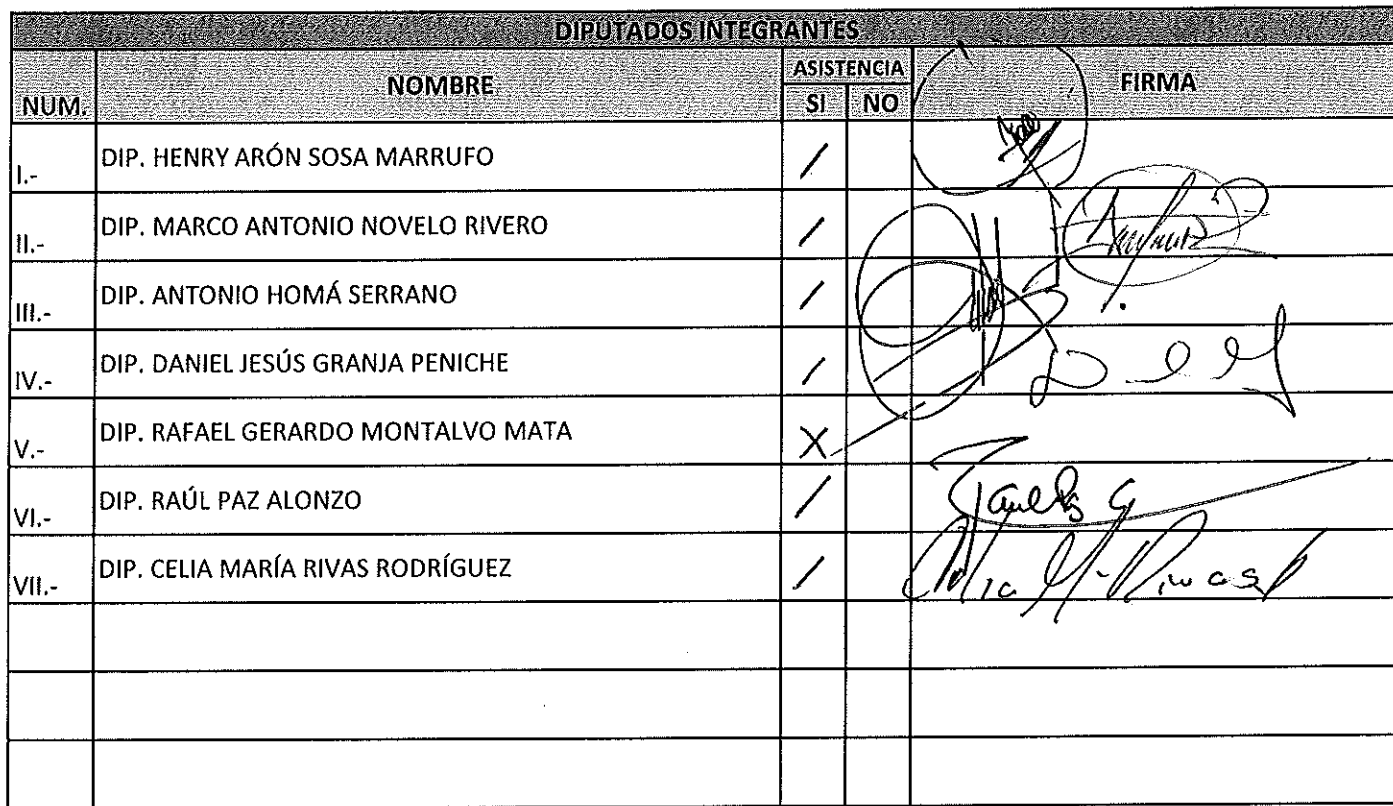 DIPUTADOS INTEGRANTES
NUM. NOMBRE ASISTENCIA FIRMA
SI NO
I.- DIP. HENRY ARÓN SOSA MARRUFO /
II.- DIP. MARCO ANTONIO NOVELO RIVERO /
III.- DIP. ANTONIO HOMÁ SERRANO /
IV.- DIP. DANIEL JESÚS GRANJA PENICHE /
V.- DIP. RAFAEL GERARDO MONTALVO MATA X
VI.- DIP. RAÚL PAZ ALONZO /
VII.- DIP. CELIA MARÍA RIVAS RODRÍGUEZ /